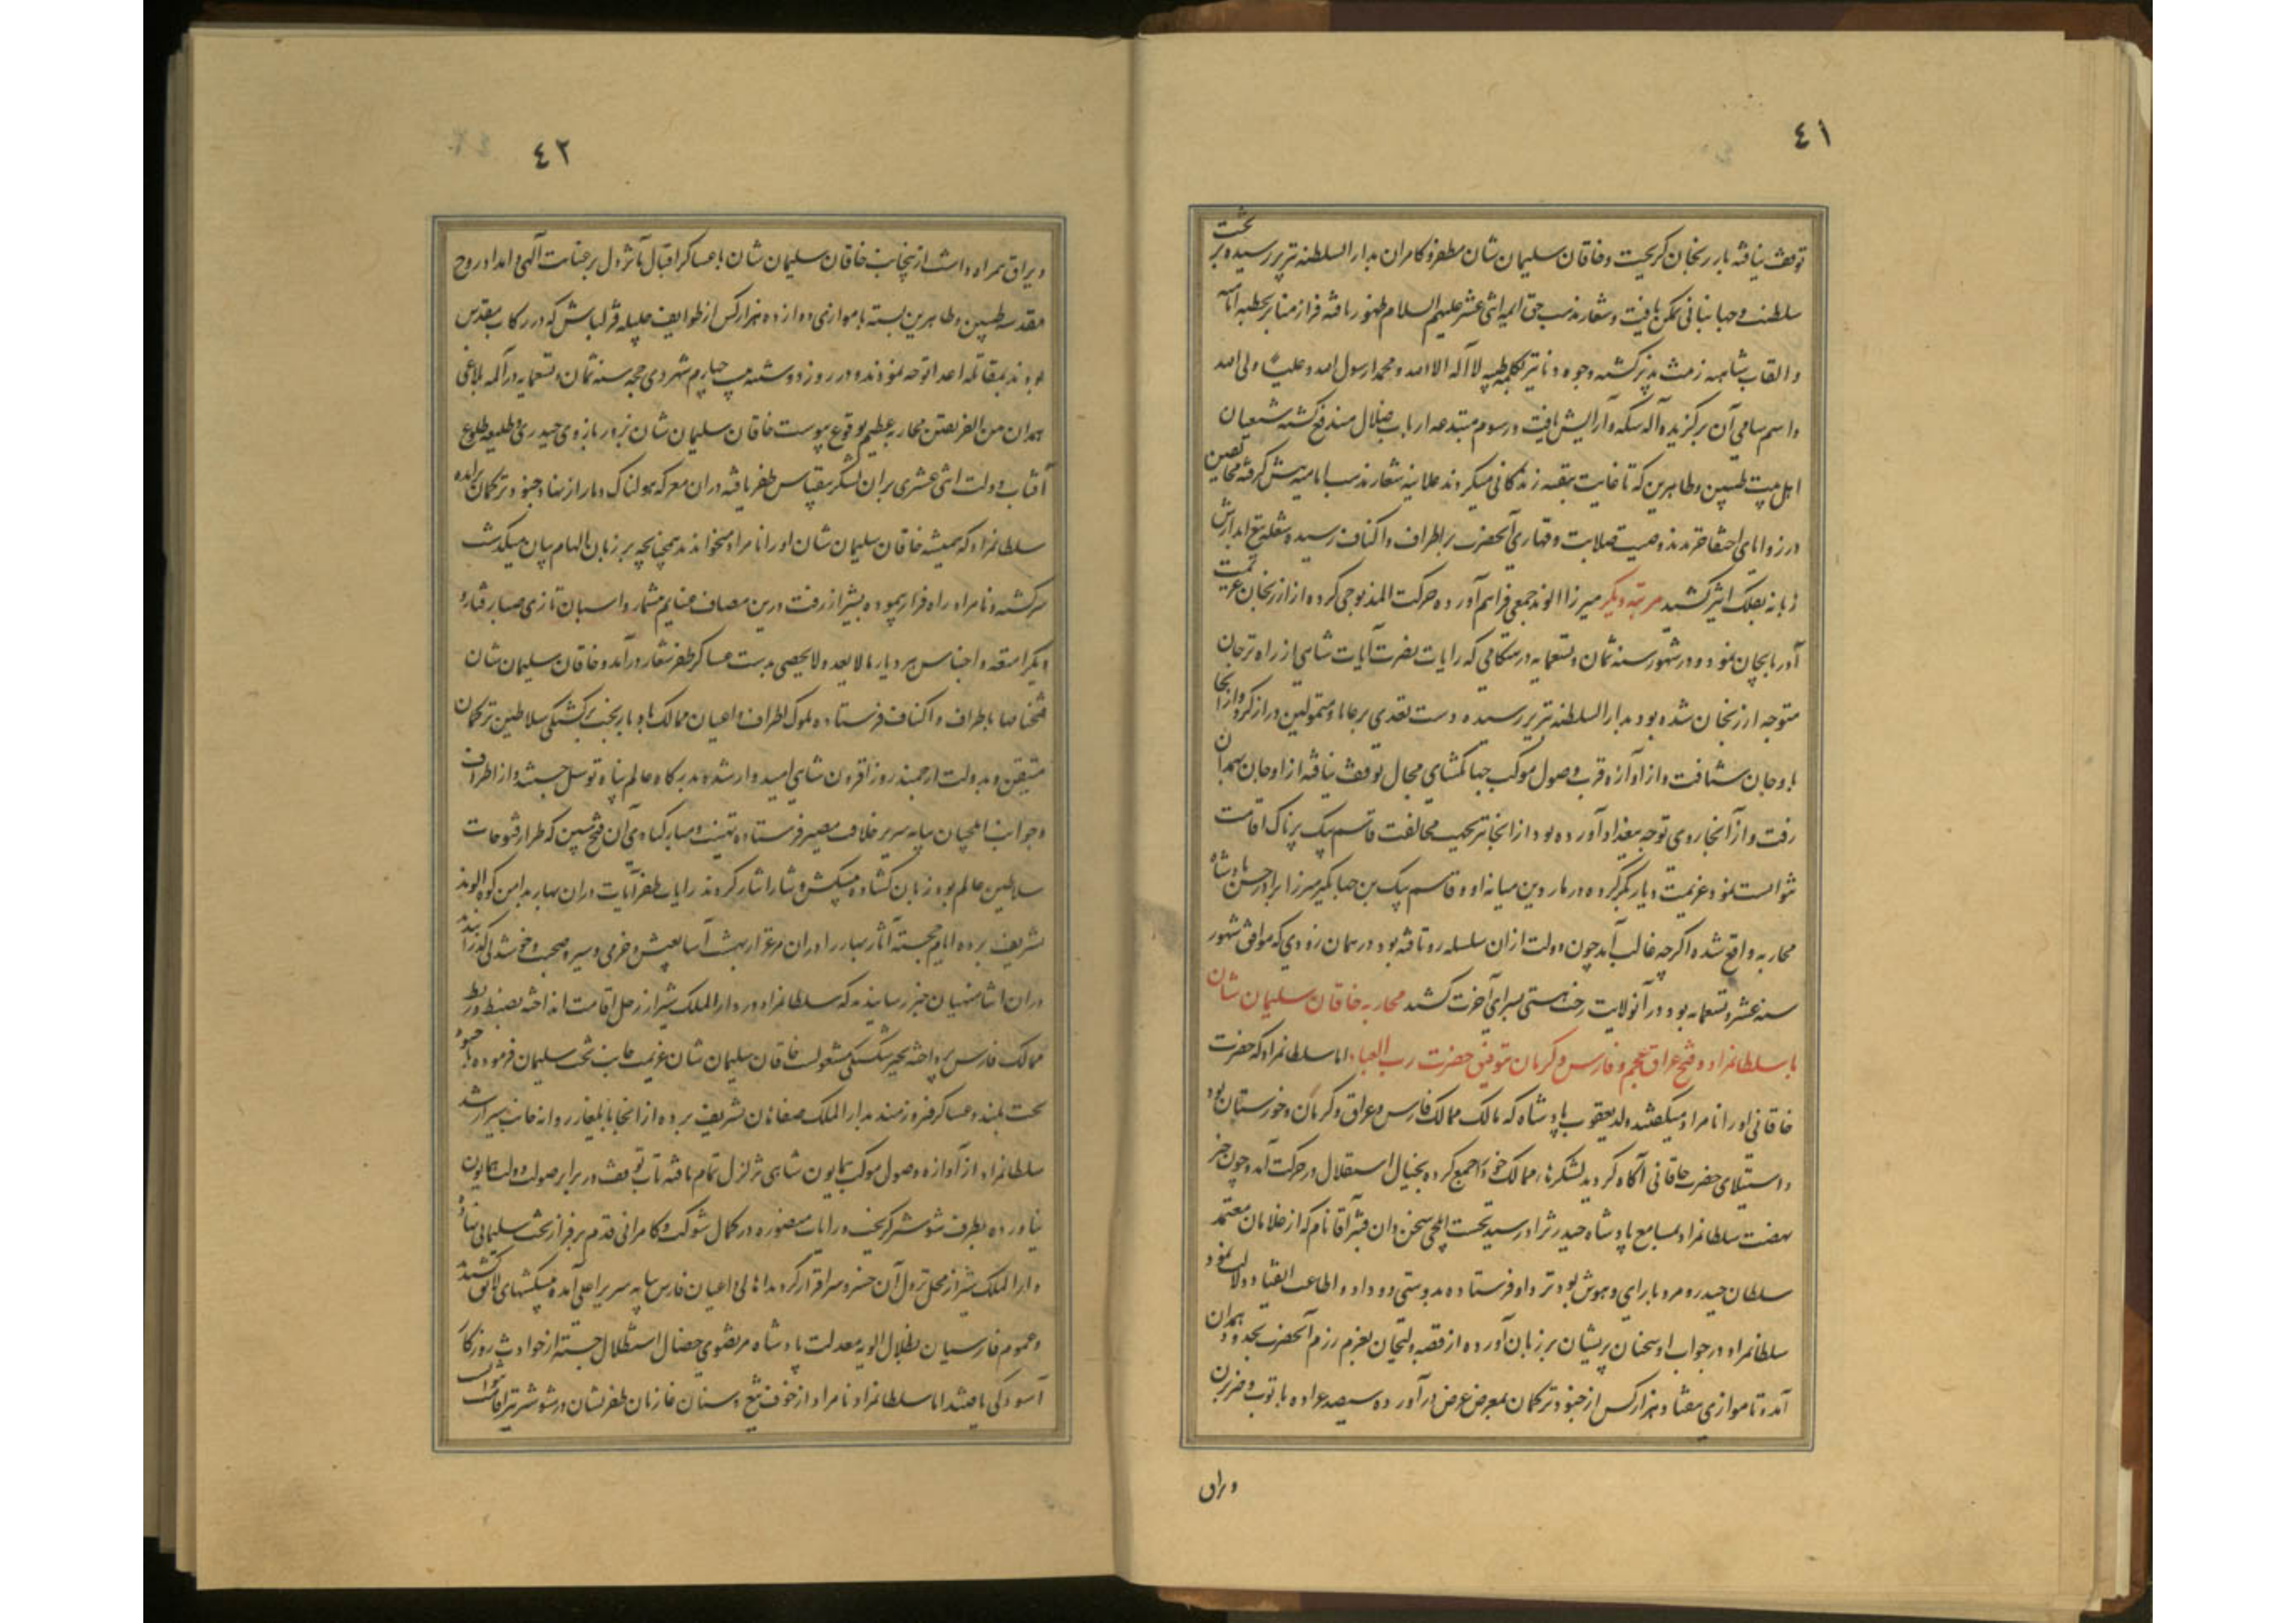 ٤١
توقف نیافته بارزنجان گریخت و خاقان سلیمان شان مظفر و کامران بدار السلطنه تبریز رسیده بر تخت
سلطنت و جهانبانی تمکن یافت و شعار مذهب حق ائمه اثنی عشر علیهم السلام ظهور یافته فراز منابر بخطبه
والقاب شاهی زینت پذیر گشته وجوه دنانیر بکلمه طیبه لا اله الا الله و محمد رسول الله و علی ولی الله
واسم سامی آن برگزیده آله سکه و آرایش یافت و رسوم مبتدعه ارباب ضلال مندفع گشته شیعیان
اهل بیت طیبین و طاهرین که تا غایت بتقیه زندگانی میکردند علانیه شعار مذهب امامیه پیش گرفته مخالفین
در زوایای اختفا خزیدند وصیت صلابت و قهاری آنحضرت باطراف و اکناف رسیده شعله تیغ
زبانه بفلک اثیر کشید مرتبه دیگر میرزا الوند جمعی فراهم آورده حرکت المذبوحی کرده از ارزنجان عزیمت
آذربایجان نمود و در شهور سنه ثمان و تسعمایه در هنگامی که رایات نصرت آیات شاهی از راه ترجان
متوجه ارزنجان شده بود بدار السلطنه تبریز رسیده دست تعدی برعایا و متمولین دراز کرد و از آنجا
باوجان شتافت و از آوازه قرب وصول موکب جهانگشای مجال توقف نیافته از اوجان بهمدان
رفت و از آنجا روی توجه ببغداد آورده بود از آنجا نیز بجهت مخالفت قاسم بیک پرناک اقامت
نتوانست نمود عزیمت دیاربکر کرده در ماردین میانه او و قاسم بیک بن جهانگیر میرزا برادر حسن پادشاه
محاربه واقع شده اگرچه غالب آمد چون دولت ازان سلسله رو تافته بود در همان زودی که موافق شهور
سنه عشر و تسعمایه بود در آنولایت رخت هستی بسرای آخرت کشید محاربه خاقان سلیمان شان
با سلطانمراد و فتح عراق عجم و فارس و کرمان بتوفیق حضرت رب العباد اما سلطانمراد که حضرت
خاقانی اورا نامراد میگفتند ولد یعقوب پادشاه که مالک ممالک فارس و عراق و کرمان و خوزستان بود
و استیلای حضرت خاقانی آگاه گردید لشکرهای ممالک خود را جمع کرده بخیال استقلال در حرکت آمد و چون خبر
نهضت سلطانمراد بمسامع پادشاه حیدر نژاد رسید نخست ایلچی سخن دان قنبر آقا نام که از غلامان معتمد
سلطان حیدر و مرد با رای و هوش بود نزد او فرستاده بدوستی و وداد و اطاعت و انقیاد دلالت نمود
سلطانمراد در جواب او سخنان پریشان بر زبان آورده از بعزم رزم آنحضرت بحدود همدان
آمد و تا موازی هفتاد هزار کس از جنود ترکمان بمعرض عرض در آورده سیصد عراده با توپ و ضربزن
ویراق
٤٢
ویراق همراه داشت ازینجانب خاقان سلیمان شان با عساکر اقبال مآثر دل بر عنایت آلهی و امداد روح
مقدسه طیبین و طاهرین بسته با موازی دوازده هزار کس از طوایف جلیله قزلباش که در رکاب مقدس
بودند بمقاتله اعدا توجه نمودند و در روز دوشنبه بیست چهارم شهر ذی حجه سنه ثمان و تسعمایه در آلمه بلاغی
همدان من الفریقین محاربه عظیم بوقوع پیوست خاقان سلیمان شان بزور بازوی حیدری و طلیعه طلوع
آفتاب دولت اثنی عشری بران لشکر ظفر یافته دران معرکه هولناک دمار از نهاد جنود ترکمان برآمده
سلطانمراد که همیشه خاقان سلیمان شان اورا نامراد میخواندند همچنانچه بر زبان الهام بیان میگذشت
سرگشته و نامراد راه فرار پیموده بشیراز رفت درین مصاف غنایم بیشمار و اسبان تازی صبا رفتار و
دیگر امتعه و اجناس هر دیار مالا یعد و لا یحصی بدست عساکر ظفر شعار درآمد و خاقان سلیمان شان
باطراف و اکناف فرستاده ملوک اطراف و اعیان ممالک سلاطین ترکمان
متیقن و بدولت ارجمند روز افزون شاهی امیدوار شده بدرگاه عالم پناه توسل جستند و از اطراف
و جوانب ایلچیان بپایه سریر خلافت مصیر فرستاده تهنیت و مبارکبادی آن فتح مبین که طراز فتوحات
سلاطین عالم بود زبان گشاده پیشکش و نثار ایثار کردند رایات ظفر آیات دران بهار بدامن کوه الوند
تشریف برده ایام خجسته آثار بهار را دران مرغزار بهشت آسا بعیش و خرمی و سیر و صحبت و خوشدلی گذرانیدند
دران اثنا منهیان خبر رسانیدند که سلطانمراد در دار الملک شیراز رحل اقامت انداخته بضبط و ربط
ممالک فارس پرداخته بجبر شکستگی مشغولست خاقان سلیمان شان عزیمت جانب تخت سلیمان فرموده با جنود
بخت بلند و عساکر فیروزمند بدار الملک صفاهان تشریف برده از آنجا بایلغار روانه جانب شیراز شد
سلطانمراد از آوازه وصول موکب همایون شاهی تزلزل تمام یافته تاب توقف در برابر صولت دولت همایون
نیاورده بطرف شوشتر گریخت و رایات منصوره در کمال شوکت و کامرانی قدم بر فراز تخت سلیمانی نهاده
دار الملک شیراز محل نزول آن خسرو سرافراز گردید اهالی و اعیان فارس بپایه سریر اعلی آمده پیشکشهای لایق کشیدند
وعموم فارسیان بظلال الویه معدلت پادشاه مرتضوی خصال استظلال جسته از حوادث روزگار
آسودگی یافتند اما سلطانمراد نامراد از خوف تیغ و سنان غازیان ظفر نشان در شوشتر نیز اقامت نتوانست